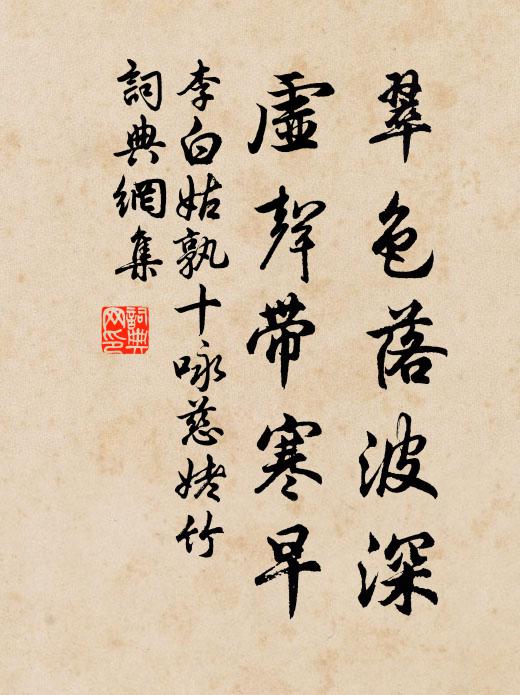 翠色落波深
虛聲帶寒早
李白姑孰十咏慈姥竹
詞典網集
詞典网印